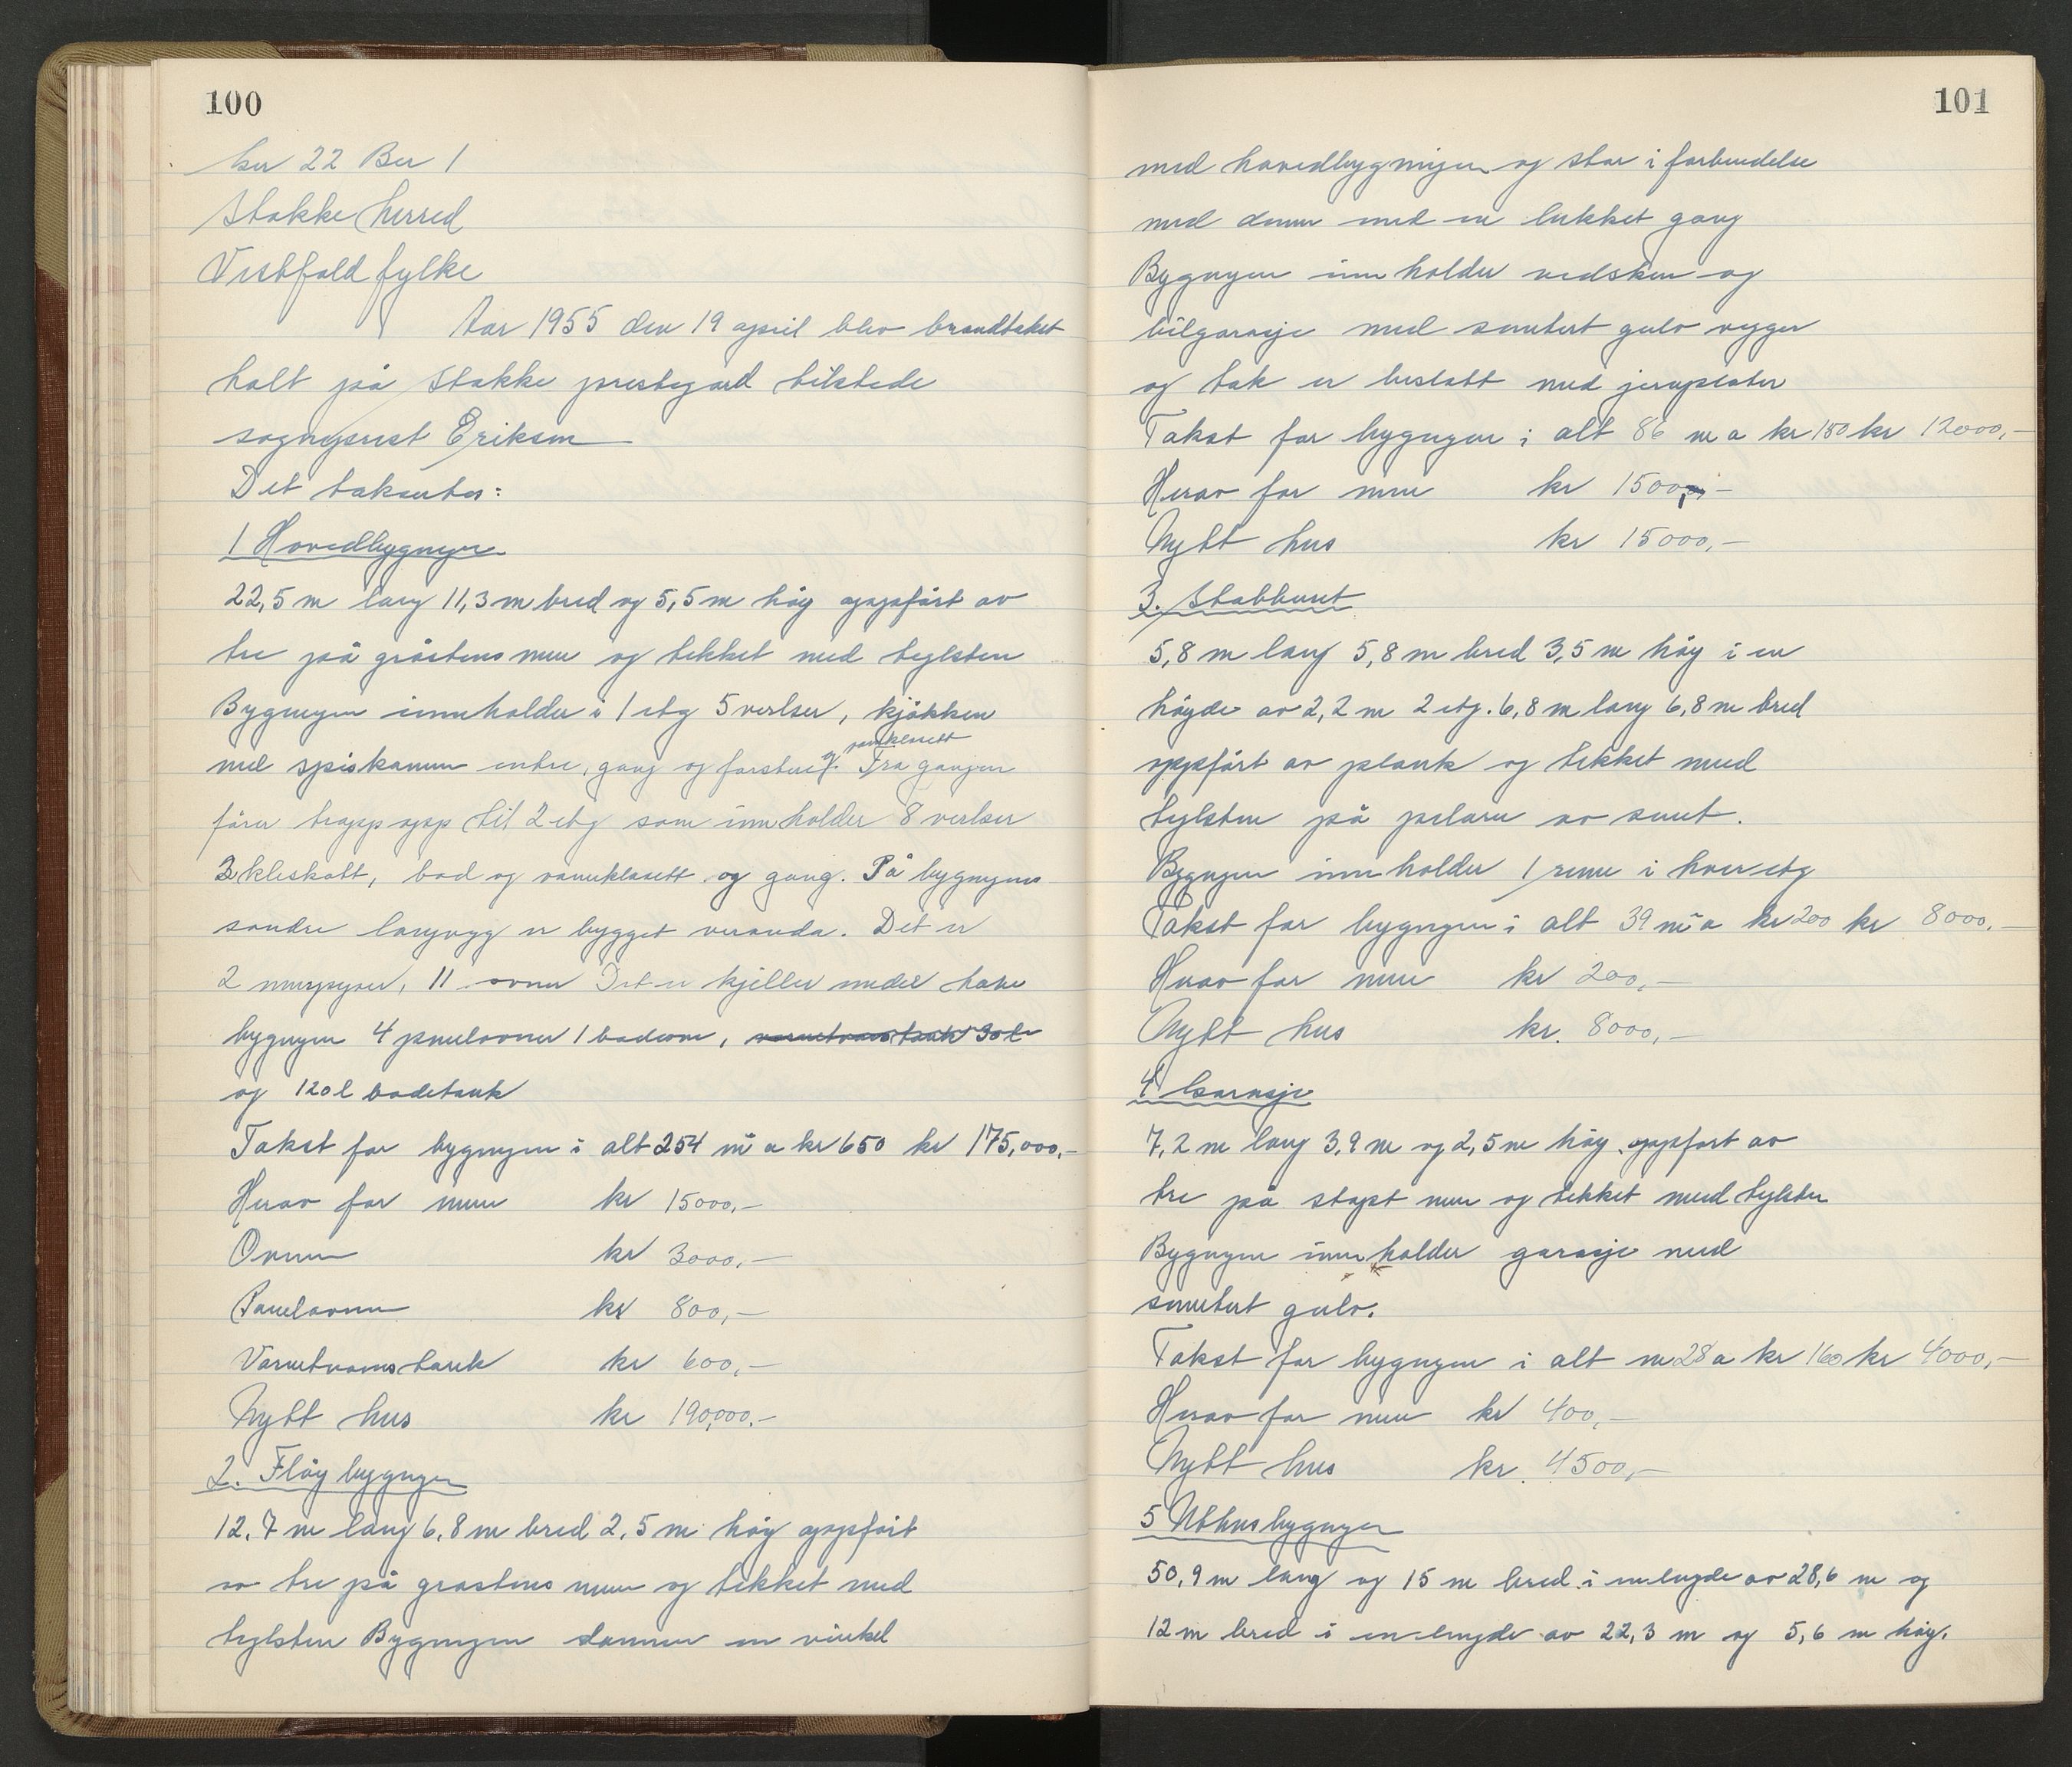 100
Gnr 22 Bnr 1
Stokke herred
Vestfold fylke
Aar 1955 den 19 april blev brandtakst
holt på Stokke prestegard tilstede
sogneprest Eriksen
Det taksertes:
1 Hovedbygnyen
22,5 m lang 11,3 m bred og 5,5 m höy oppfört av
tre på gråstens mur og tekket med teglsten
Bygnyen innholder i 1 etg 5 verlser, kjökken
med spiskammer entre, gang og forstue og vannklosett. Fra gangen
förer trapp opp til 2 etg som innholder 8 verlser
3 kleskott, bad og vannklosett og gang. På bygnyens
sondre langvegg er bygget veranda. Det er
2 murpiper, 11 ovner Det er kjeller under hele
bygnyen 4 panelovner 1 badeovn, varmtvanstank 30 l
og 120 l badetank
Takst for bygnyen i alt 254 m² a kr 650 kr 175,000,-
Herav for mur kr 15000,-
Ovner kr 3000,-
Panelovner kr 800,-
Varmtvanns tank kr 600,-
Nytt hus kr 190,000,-
2. Flöy bygnyen
12,7 m lang 6,8 m bred 2,5 m höy oppfört
av tre på grastens mur og tekket med
teglsten Bygnyen danner en vinkel
101
med hovedbygningen og star i forbindelse
med denne med en lukket gang
Bygnyen innholder vedskur og
bilgarasje med sementert gulv vegger
og tak er beslått med jernplater
Takst for bygnyen i alt 86 m a kr 150 kr 12000,-
Herav for mur kr 1500,-
Nytt hus kr 15000,-
3. Stabburet
5,8 m lang 5,8 m bred 3,5 m höy i en
höyde av 2,2 m 2 etg. 6,8 m lang 6,8 m bred
oppfört av plank og tekket med
teglsten på pelarer av sement.
Bygnyen innholder 1 rum i hver etg
Takst for bygnyen i alt 39 m² a kr 200 kr 8000,-
Herav for mur kr 200,-
Nytt hus kr. 8000,-
4 Garasje
7,2 m lang 3,9 m og 2,5 m höy oppfort av
tre på stöpt mur og tekket med teglsten
Bygnyen innholder garasje med
sementert gulv.
Takst for bygnyen i alt m 28 a kr 160 kr 4000,-
Herav for mur kr 400,-
Nytt hus kr. 4500,-
5 Uthusbygnyen
50,9 m lang og 15 m bred i en lengde av 28,6 m og
12 m bred i en lengde av 22,3 m og 5,6 m höy.